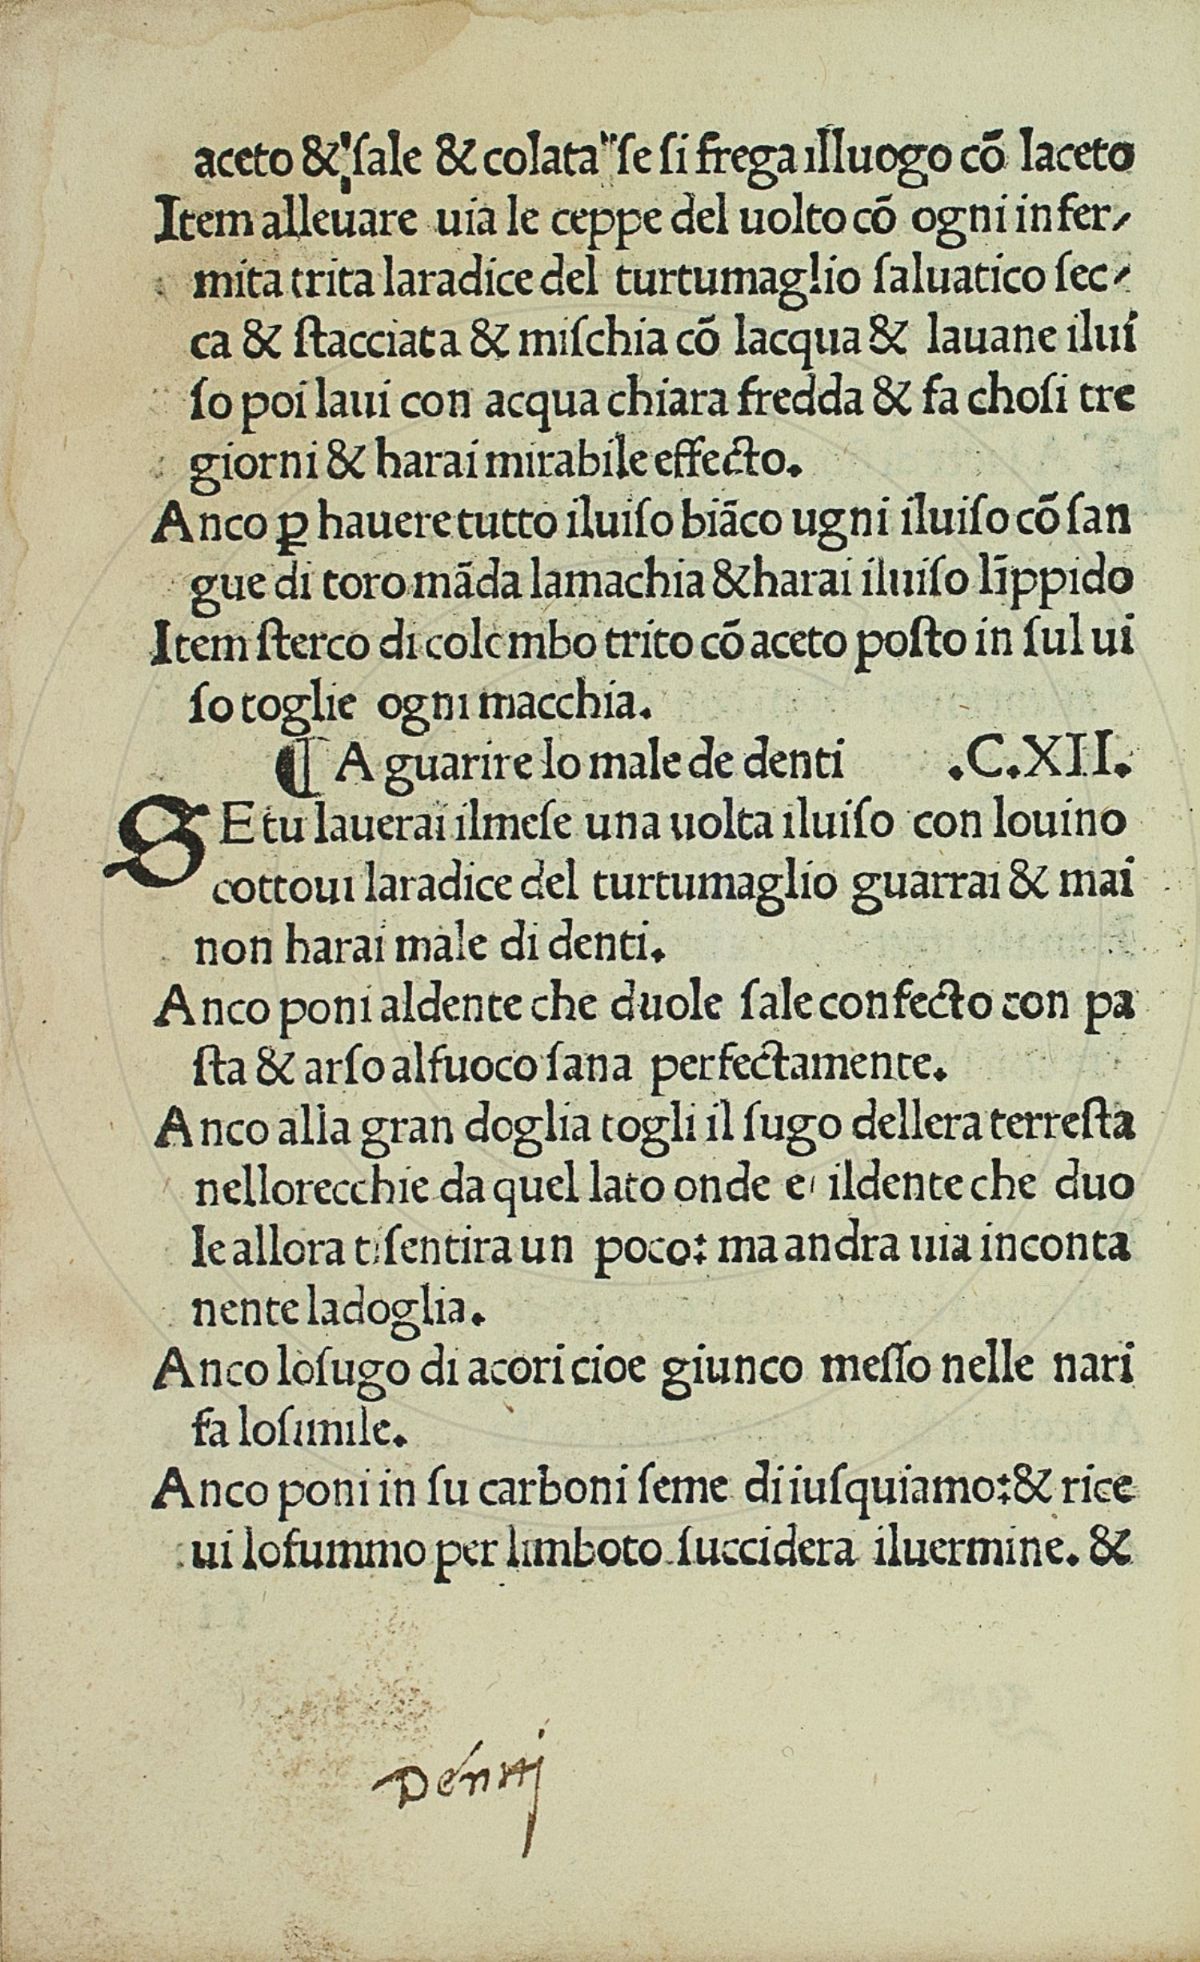 aceto & ſale & colata ſe ſi frega illuogo cō laceto
Item alleuare uia le ceppe del uolto cō ogni infer⸗
mita trita laradice del turtumaglio ſaluatico ſec⸗
ca & ſtacciata & miſchia cō lacqua & lauane ilui
ſo poi laui con acqua chiara fredda & fa choſi tre
giorni & harai mirabile effecto.
Anco ꝑ hauere tutto iluiſo biāco ugni iluiſo cō ſan
gue di toro māda lamachia & harai iluiſo līppido
Item ſterco di colombo trito cō aceto poſto in ſul ui
ſo toglie ogni macchia.
¶ A guarire lo male de denti .C.XII.
SE tu lauerai ilmeſe una uolta iluiſo con louino
cottoui laradice del turtumaglio guarrai & mai
non harai male di denti.
Anco poni aldente che duole ſale confecto con pa
ſta & arſo alfuoco ſana perfectamente.
Anco alla gran doglia togli il ſugo dellera terreſta
nellorecchie da quel lato onde e ildente che duo
le allora ti ſentira un poco: ma andra uia inconta
nente ladoglia.
Anco loſugo di acori cioe giunco meſſo nelle nari
fa loſimile.
Anco poni in ſu carboni ſeme di iuſquiamo: & rice
ui lofummo per limboto ſuccidera iluermine. &